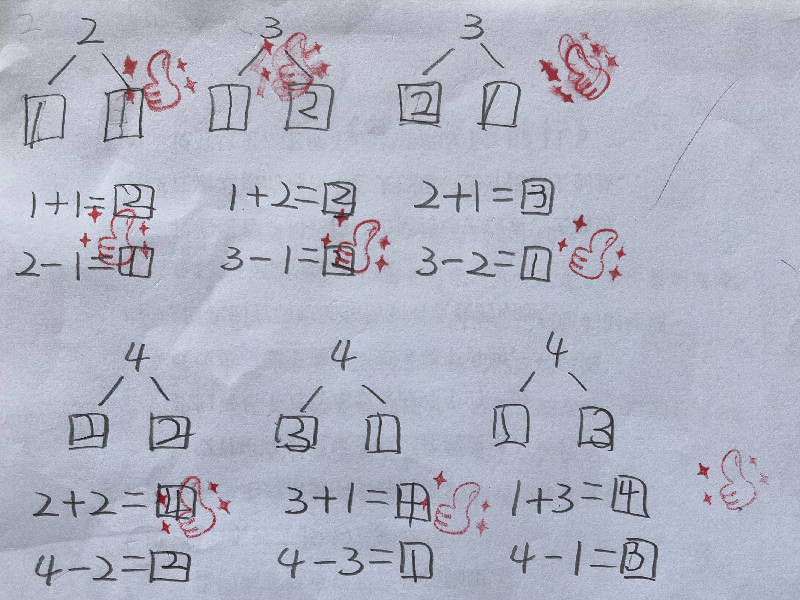 2 3 3
1 1 1 2 2 1
1+1=2 1+2=3 2+1=3
2-1=1 3-1=2 3-2=1
4 4 4
2 2 3 1 1 3
2+2=4 3+1=4 1+3=4
4-2=2 4-3=1 4-1=3